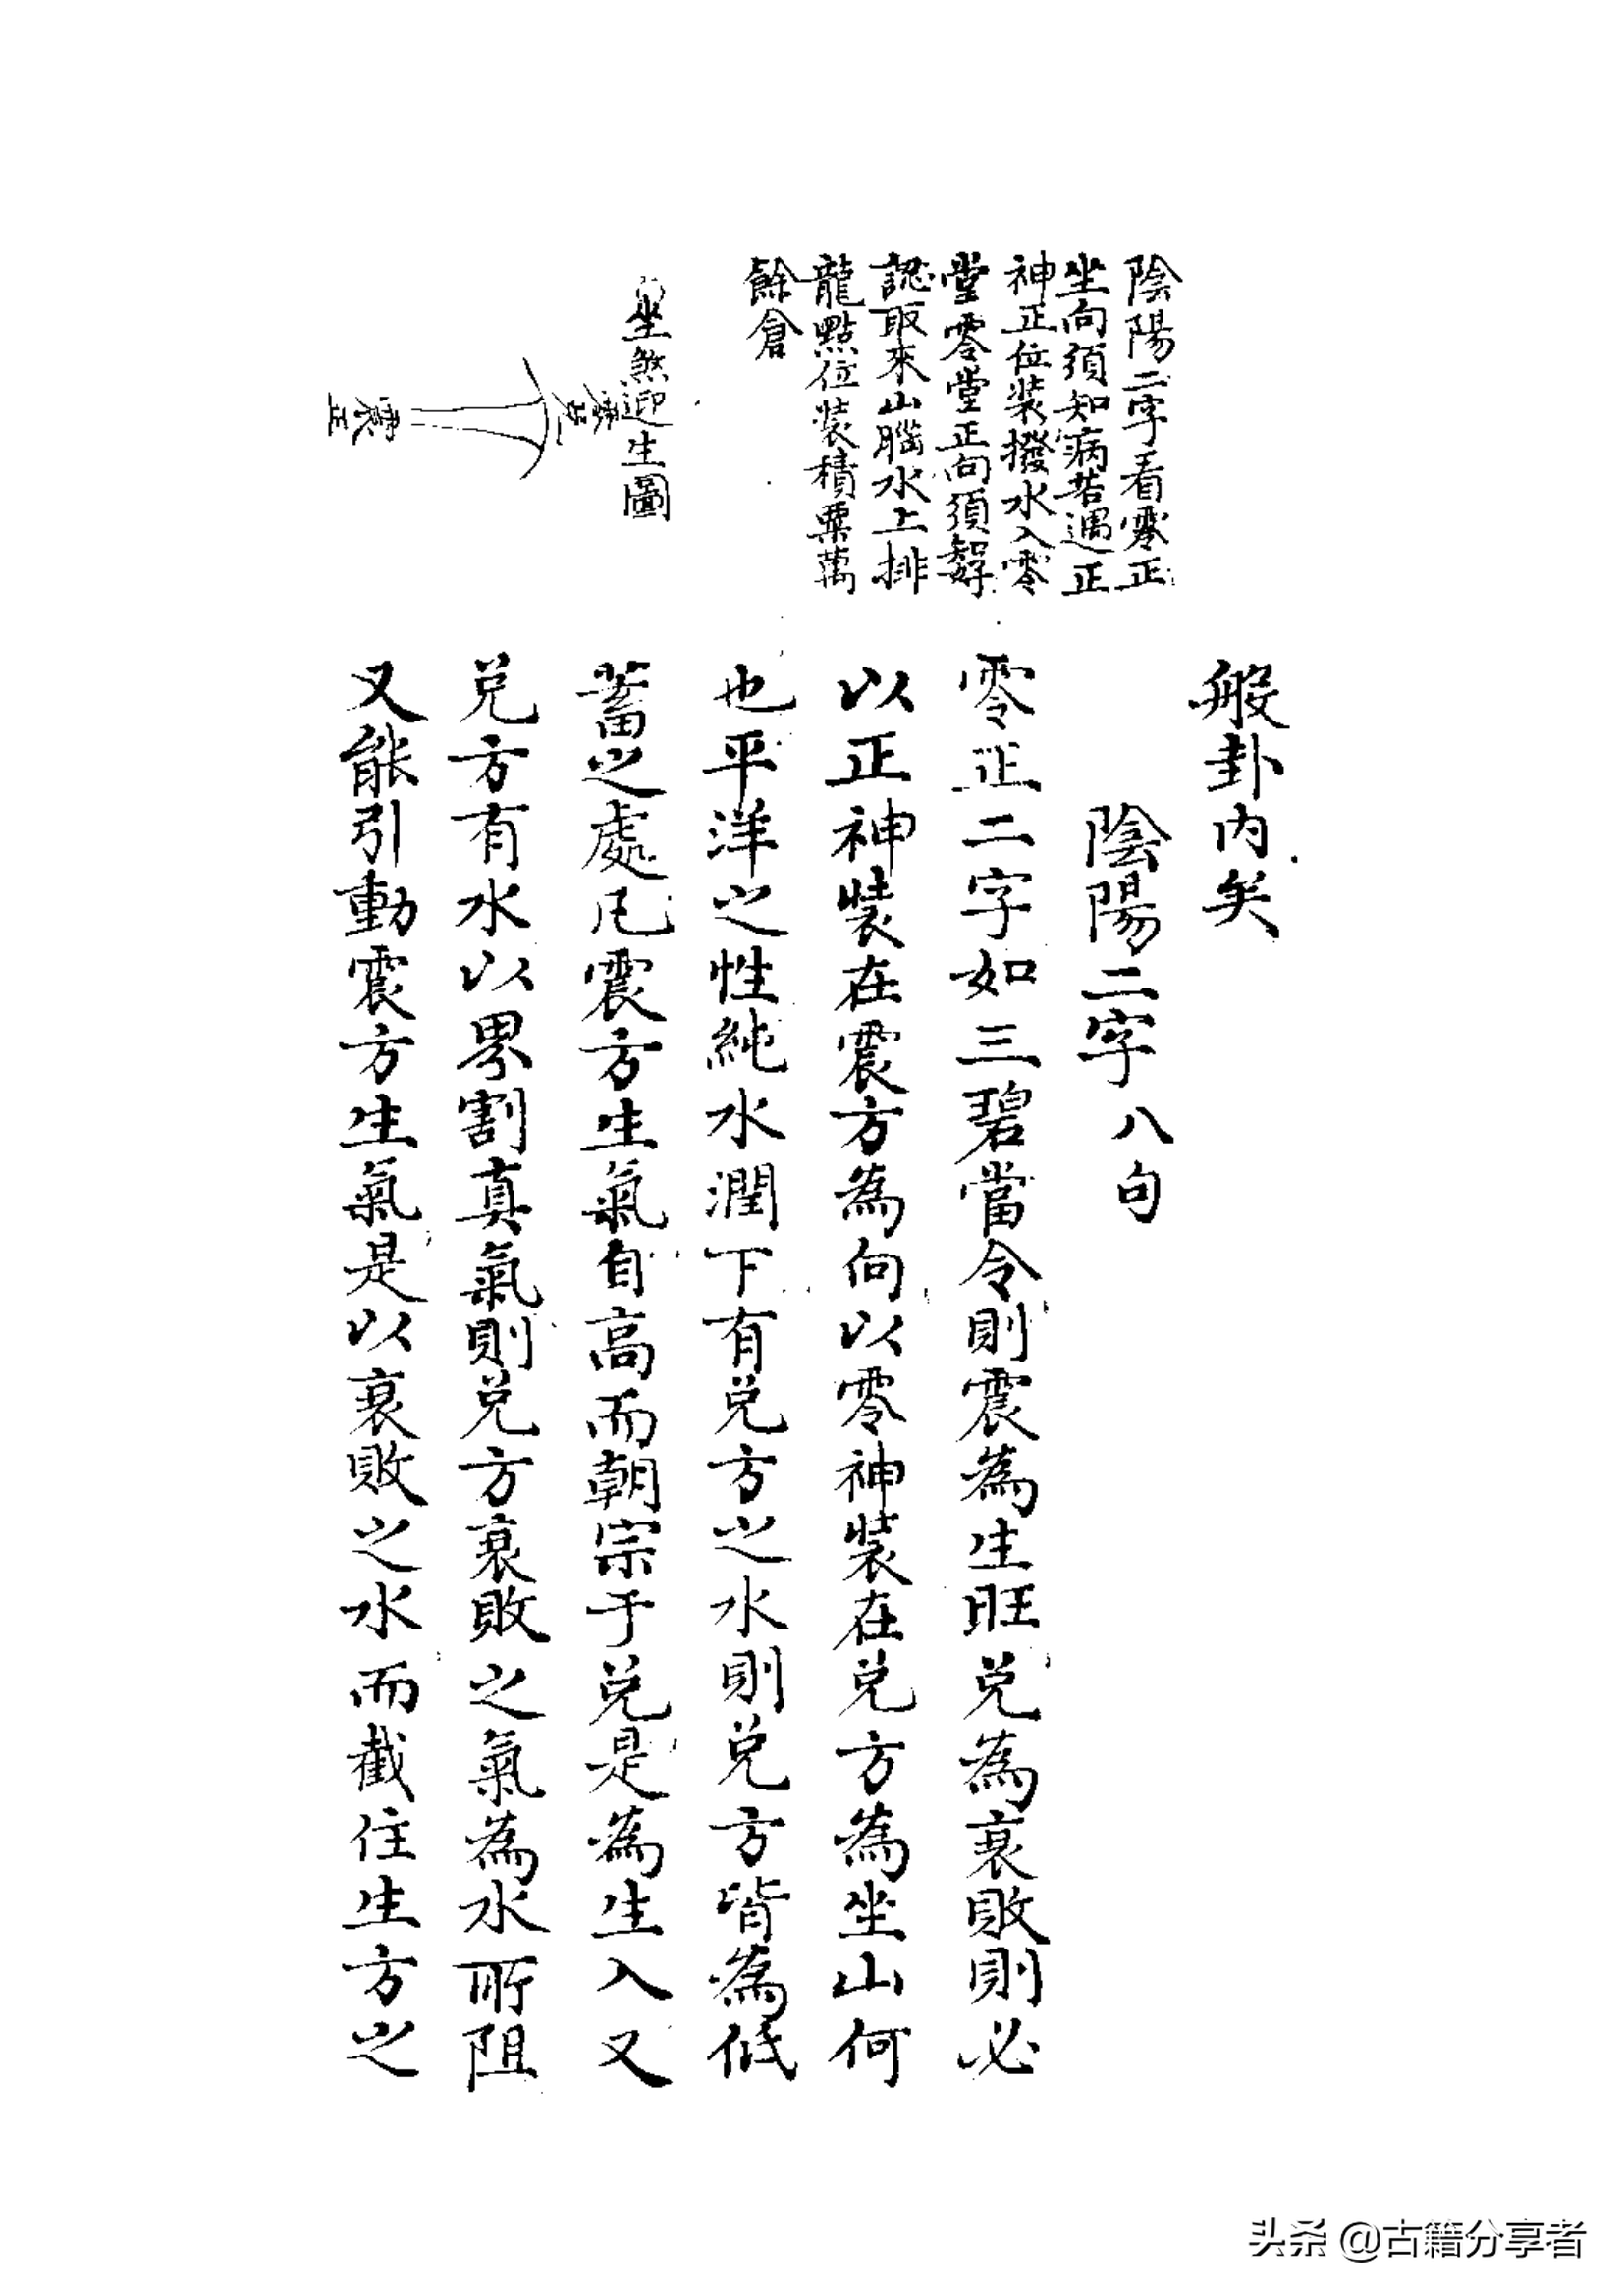 陰陽二字看零正
坐向須知病若遇正
神正位裝撥水入零
堂零堂正向須知好
認取來山腦水上排
龍點位裝積粟萬
餘倉
坐煞迎生圖
般卦内矣
陰陽二字八句
零正二字如三碧當令則震為生旺兑為衰敗則必
以正神裝在震方為向以零神裝在兑方為坐山何
也平洋之性純水潤下有兑方之水則兑方皆為低
蓄之處凡震方生氣自高而朝宗于兑是為生入又
兑方有水以界割真氣則兑方衰敗之氣為水所阻
又能引動震方生氣是以衰敗之水而截住生方之
头条 @古籍分享者